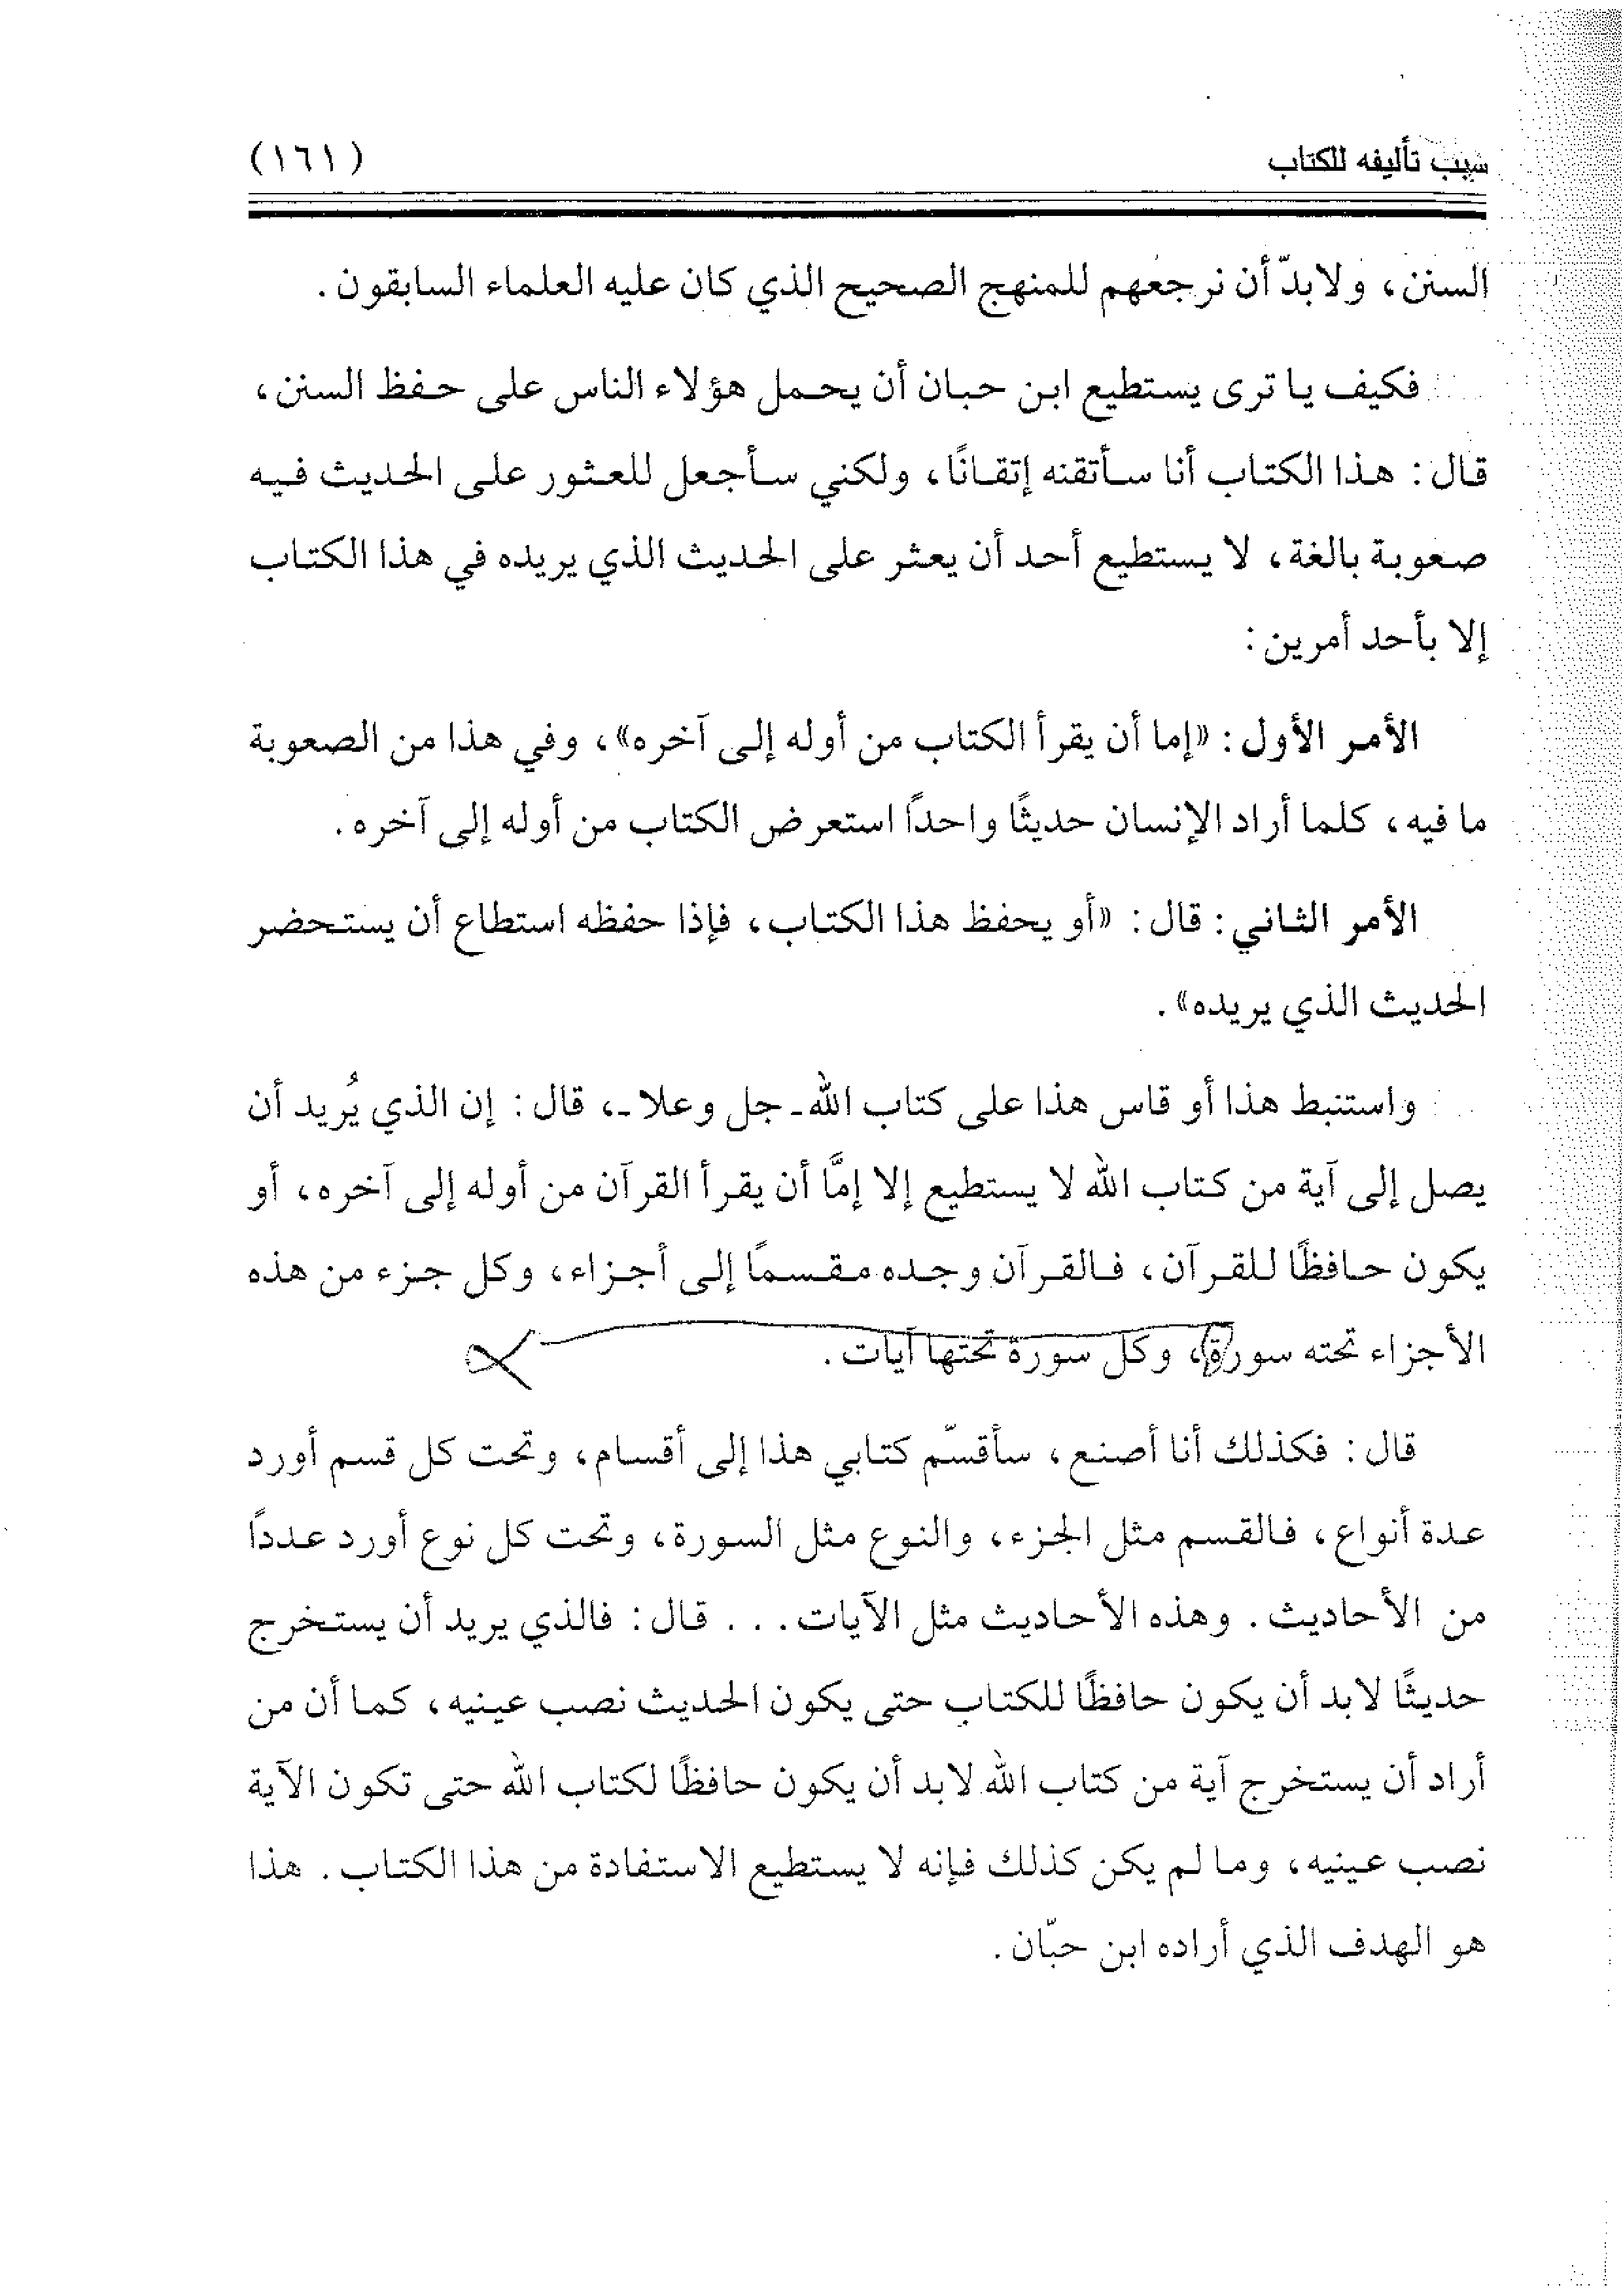 سبب تأليفه للكتاب
(١٦١)
السنن، ولابدّ أن نرجعهم للمنهج الصحيح الذي كان عليه العلماء السابقون.
فكيف يا ترى يستطيع ابن حبان أن يحمل هؤلاء الناس على حفظ السنن،
قال: هذا الكتاب أنا سأتقنه إتقانًا، ولكني سأجعل للعثور على الحديث فيه
صعوبة بالغة، لا يستطيع أحد أن يعثر على الحديث الذي يريده في هذا الكتاب
إلا بأحد أمرين:
الأمر الأول: «إما أن يقرأ الكتاب من أوله إلى آخره»، وفي هذا من الصعوبة
ما فيه، كلما أراد الإنسان حديثًا واحدًا استعرض الكتاب من أوله إلى آخره.
الأمر الثاني: قال: «أو يحفظ هذا الكتاب، فإذا حفظه استطاع أن يستحضر
الحديث الذي يريده».
واستنبط هذا أو قاس هذا على كتاب الله ـ جل وعلا ـ، قال: إن الذي يُريد أن
يصل إلى آية من كتاب الله لا يستطيع إلا إمَّا أن يقرأ القرآن من أوله إلى آخره، أو
يكون حافظًا للقرآن، فالقرآن وجده مقسمًا إلى أجزاء، وكل جزء من هذه
الأجزاء تحته سورة، وكل سورة تحتها آيات.
قال: فكذلك أنا أصنع، سأقسّم كتابي هذا إلى أقسام، وتحت كل قسم أورد
عدة أنواع، فالقسم مثل الجزء، والنوع مثل السورة، وتحت كل نوع أورد عددًا
من الأحاديث. وهذه الأحاديث مثل الآيات... قال: فالذي يريد أن يستخرج
حديثًا لابد أن يكون حافظًا للكتاب حتى يكون الحديث نصب عينيه، كما أن من
أراد أن يستخرج آية من كتاب الله لابد أن يكون حافظًا لكتاب الله حتى تكون الآية
نصب عينيه، وما لم يكن كذلك فإنه لا يستطيع الاستفادة من هذا الكتاب. هذا
هو الهدف الذي أراده ابن حبّان.